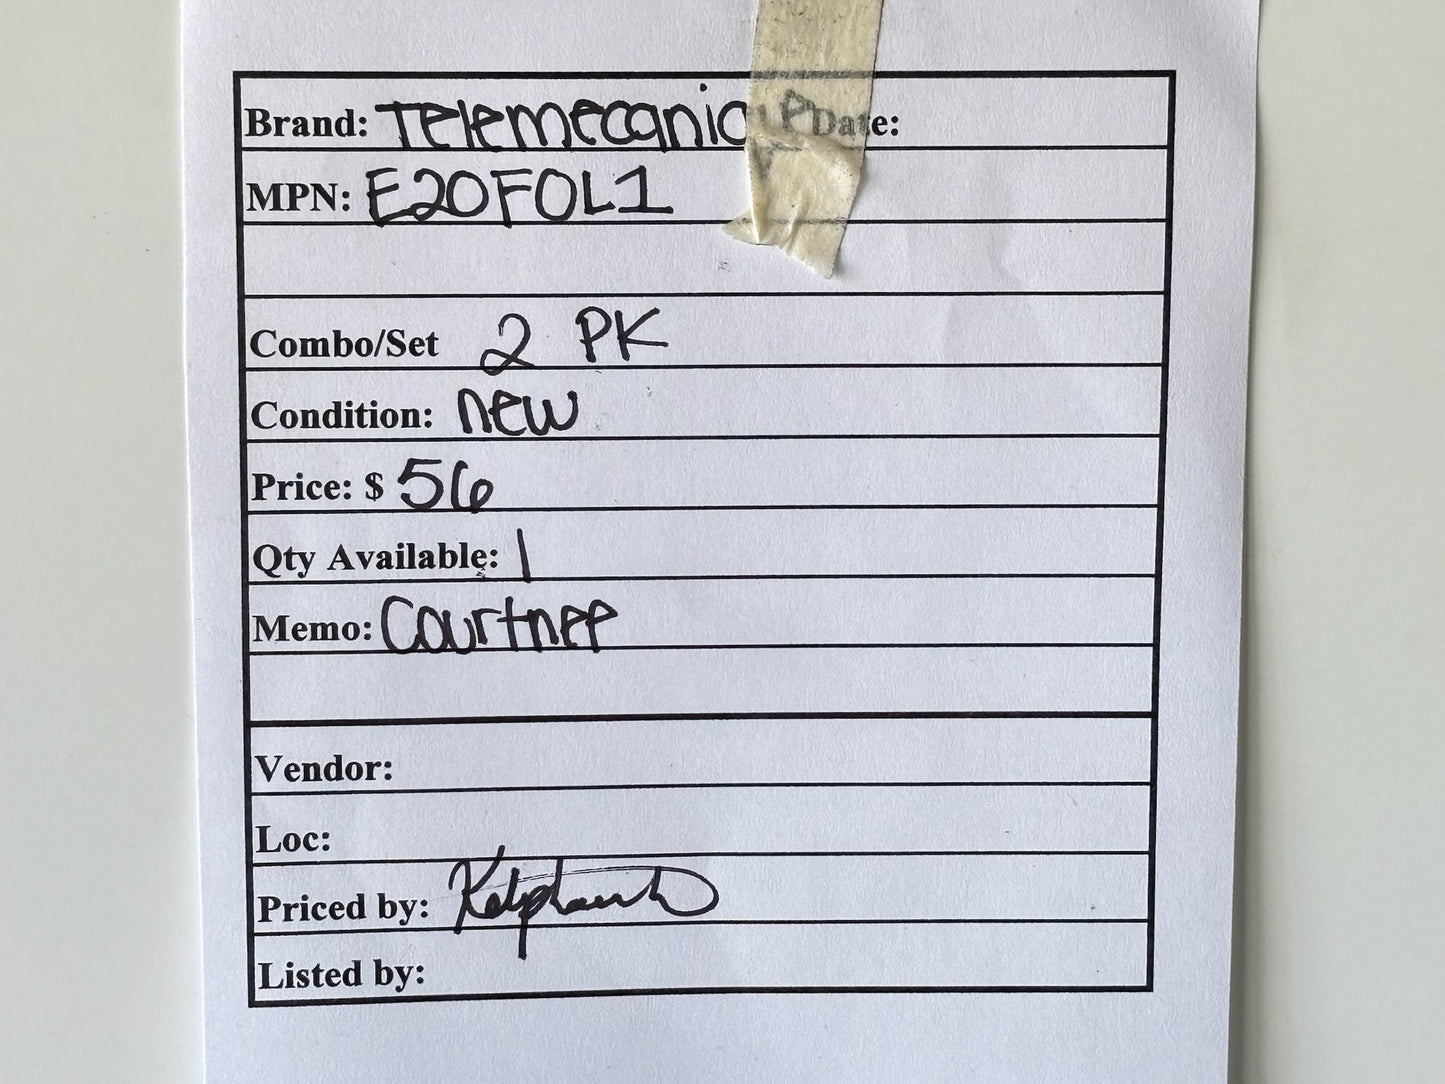 Brand: Telemecanique Date:
MPN: E20FOL1
Combo/Set 2 PK
Condition: new
Price: $ 56
Qty Available: 1
Memo: Courtnee
Vendor:
Loc:
Priced by:
Listed by: